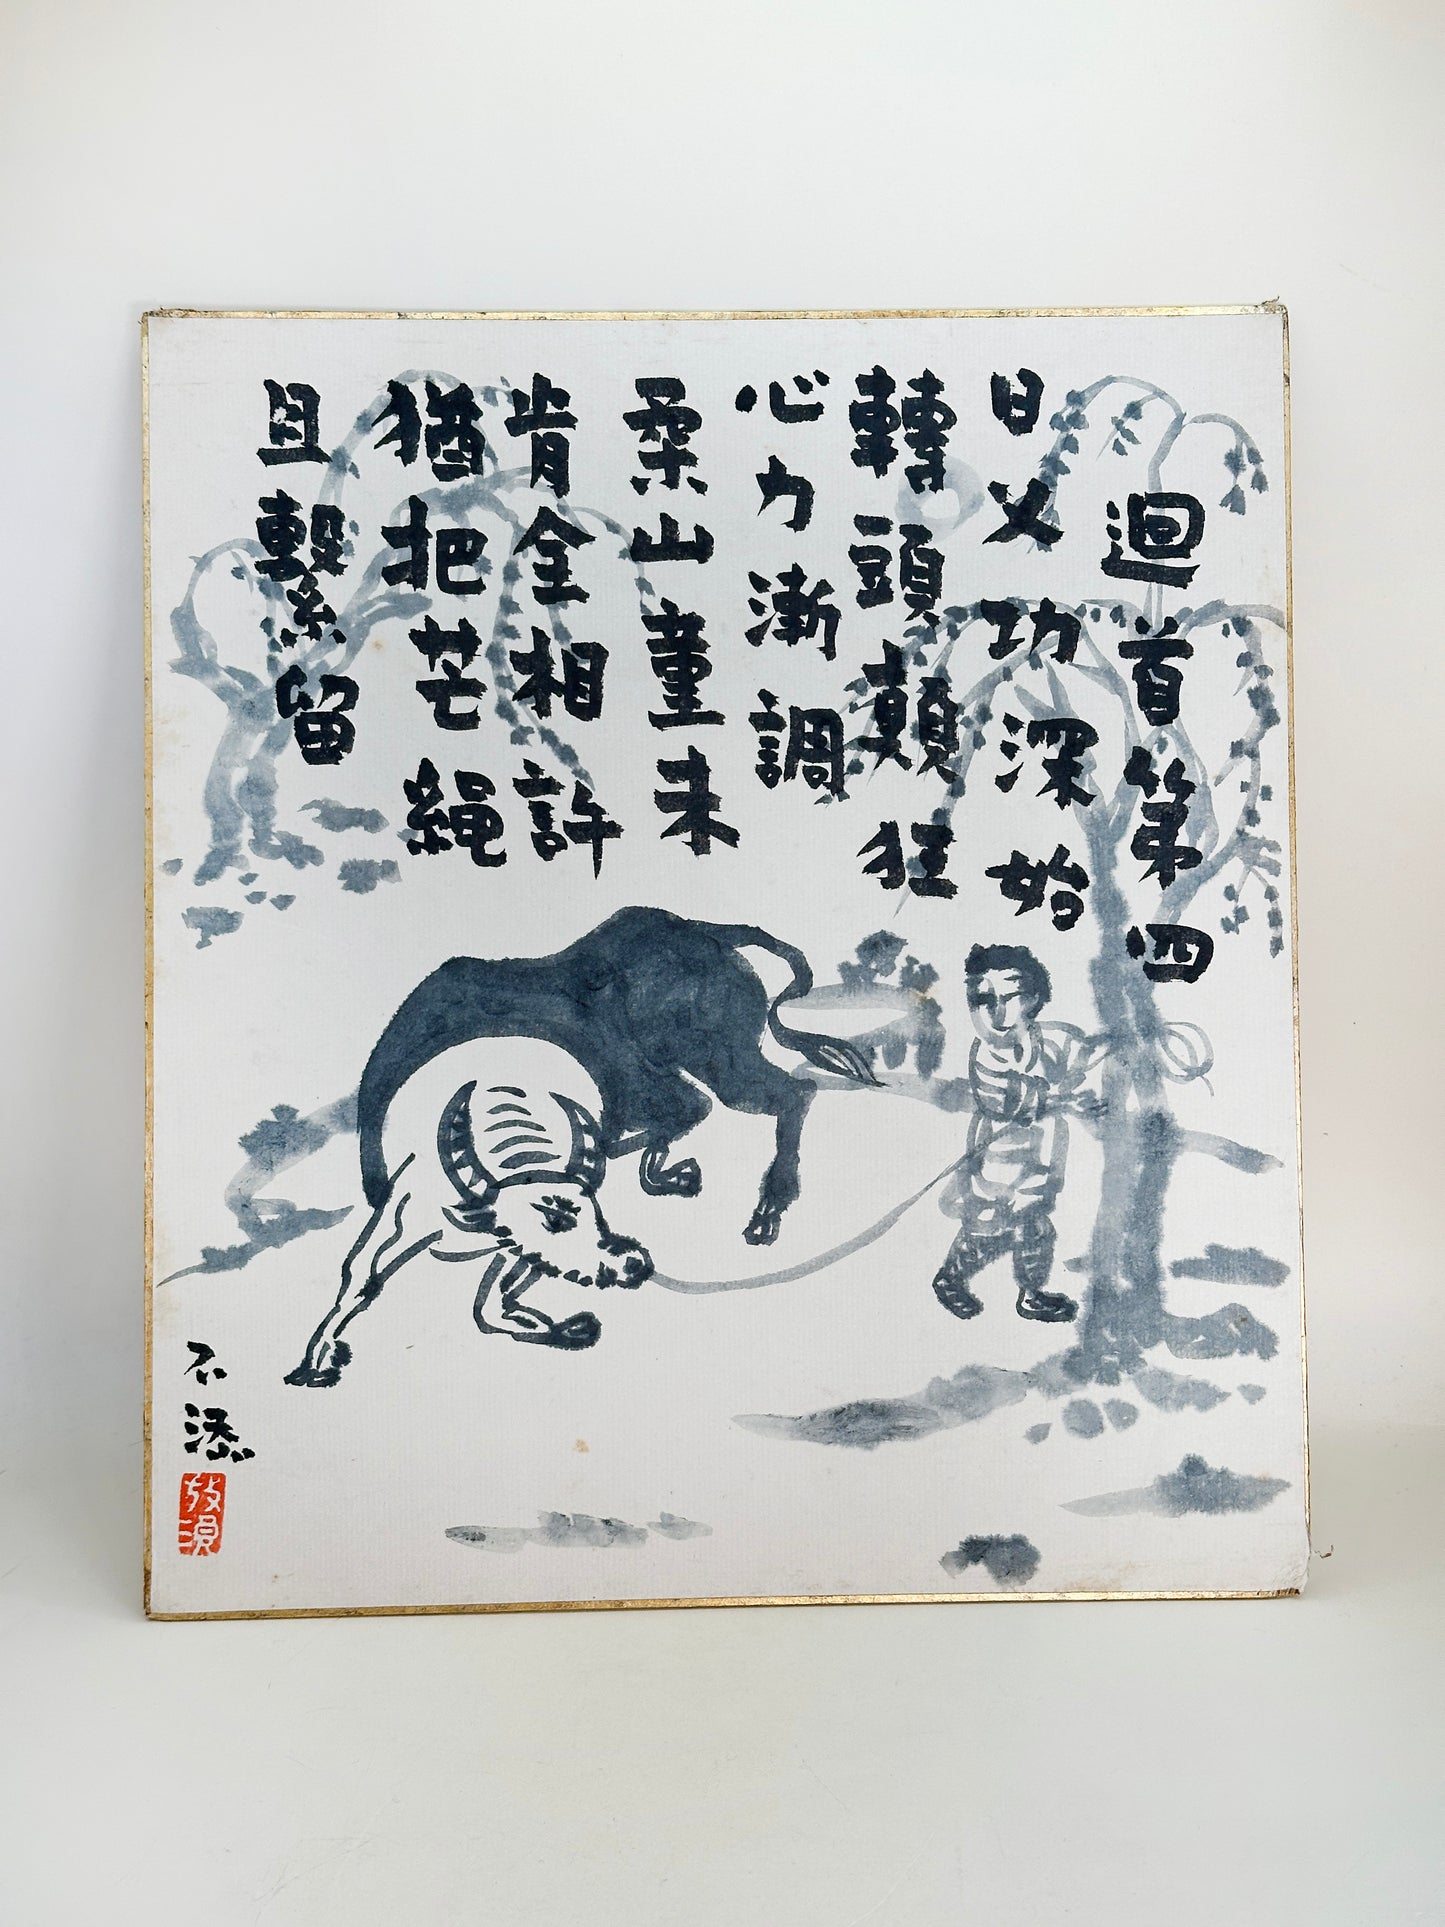 迴首第四
日久功深始
轉頭顛狂
心力漸調
柔山童未
肯全相許
猶把芒繩
且繫留
不添